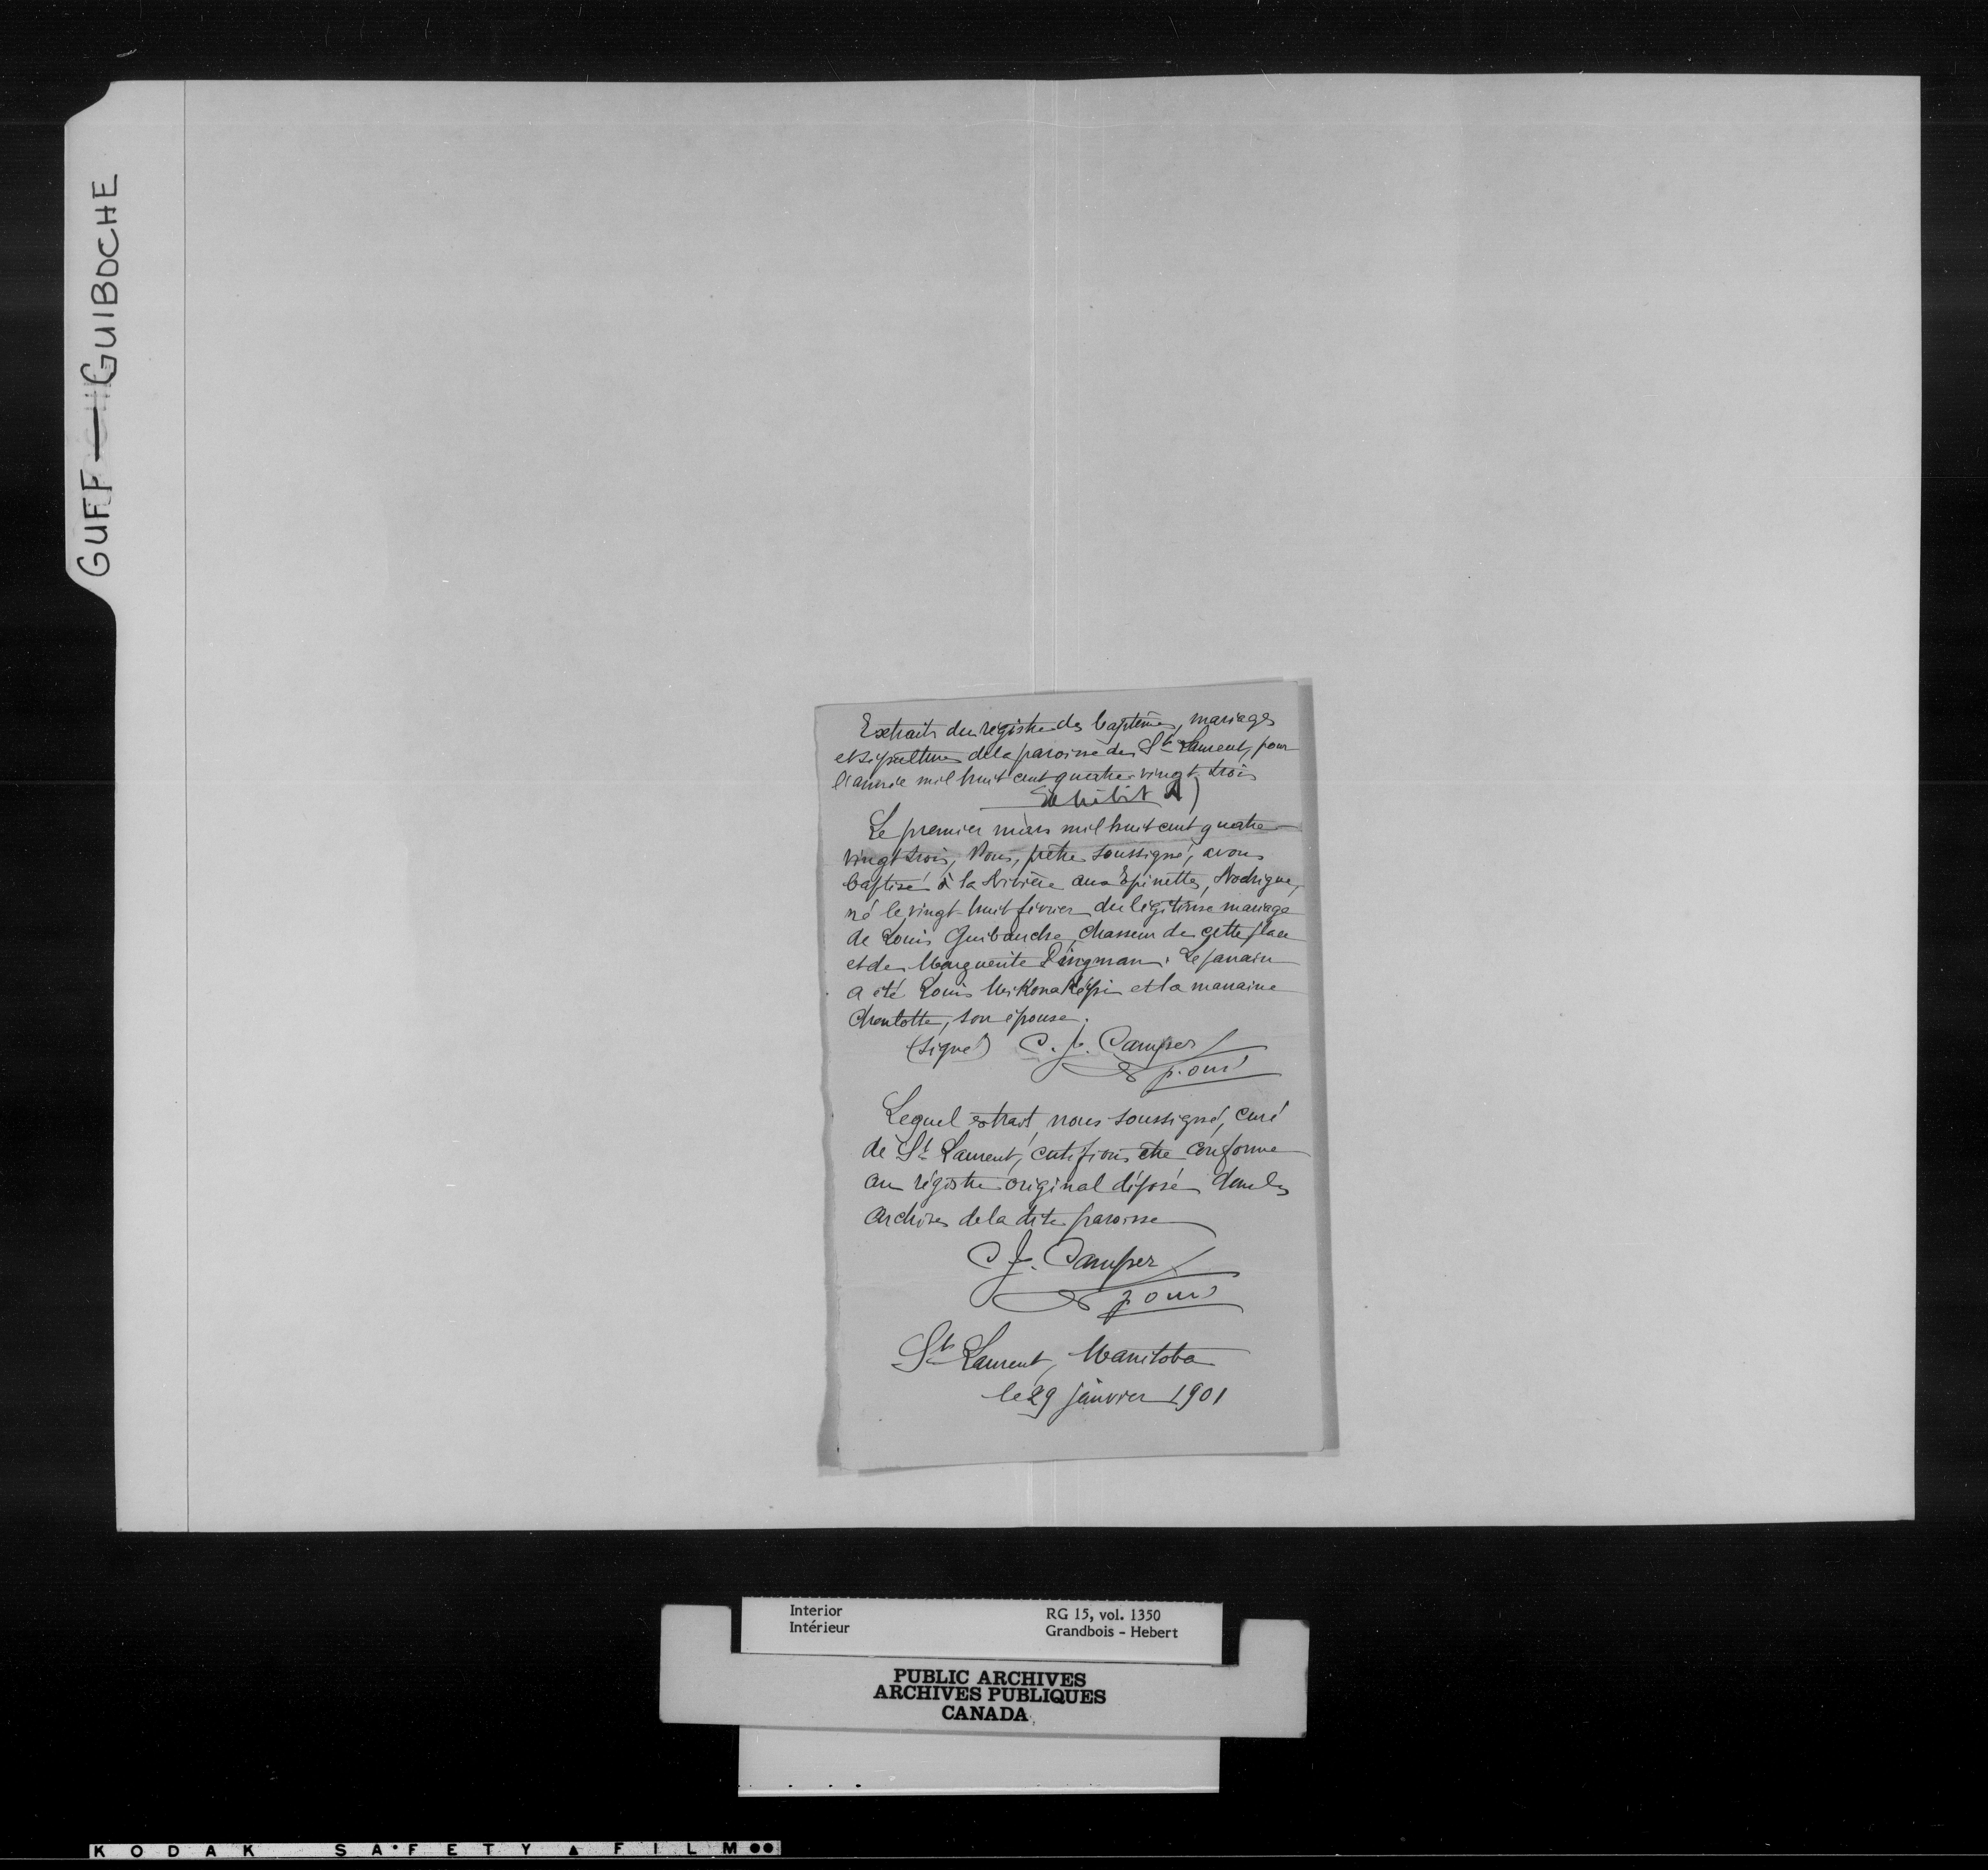 GUFF — GUIBOCHE
Extraits du régistre des baptêmes, mariages
et sépultures de la paroisse de St Laurent, pour
l'année mil huit cent quatre-vingt-trois
Exhibit A)
Le premier mars mil huit cent quatre-
vingt trois, Nous, prêtre soussigné, avons
baptisé à la Rivière aux Epinettes, Rodrigue,
né le vingt-huit février du légitime mariage
de Louis Guibauche, chasseur de cette place
et de Marguerite Pingman. Le parrain
a été Louis et la marraine
Charlotte, son épouse.
(Signé) C. J. Camper
p. omi
Lequel extrait, nous soussigné, curé
de St Laurent, certifions être conforme
au régistre original déposé dans les
archives de la dite paroisse
C J. Camper
p omi
St Laurent, Manitoba
le 29 janvier 1901
Interior RG 15, vol. 1350
Intérieur Grandbois - Hebert
PUBLIC ARCHIVES
ARCHIVES PUBLIQUES
CANADA
KODAK SAFETY FILM